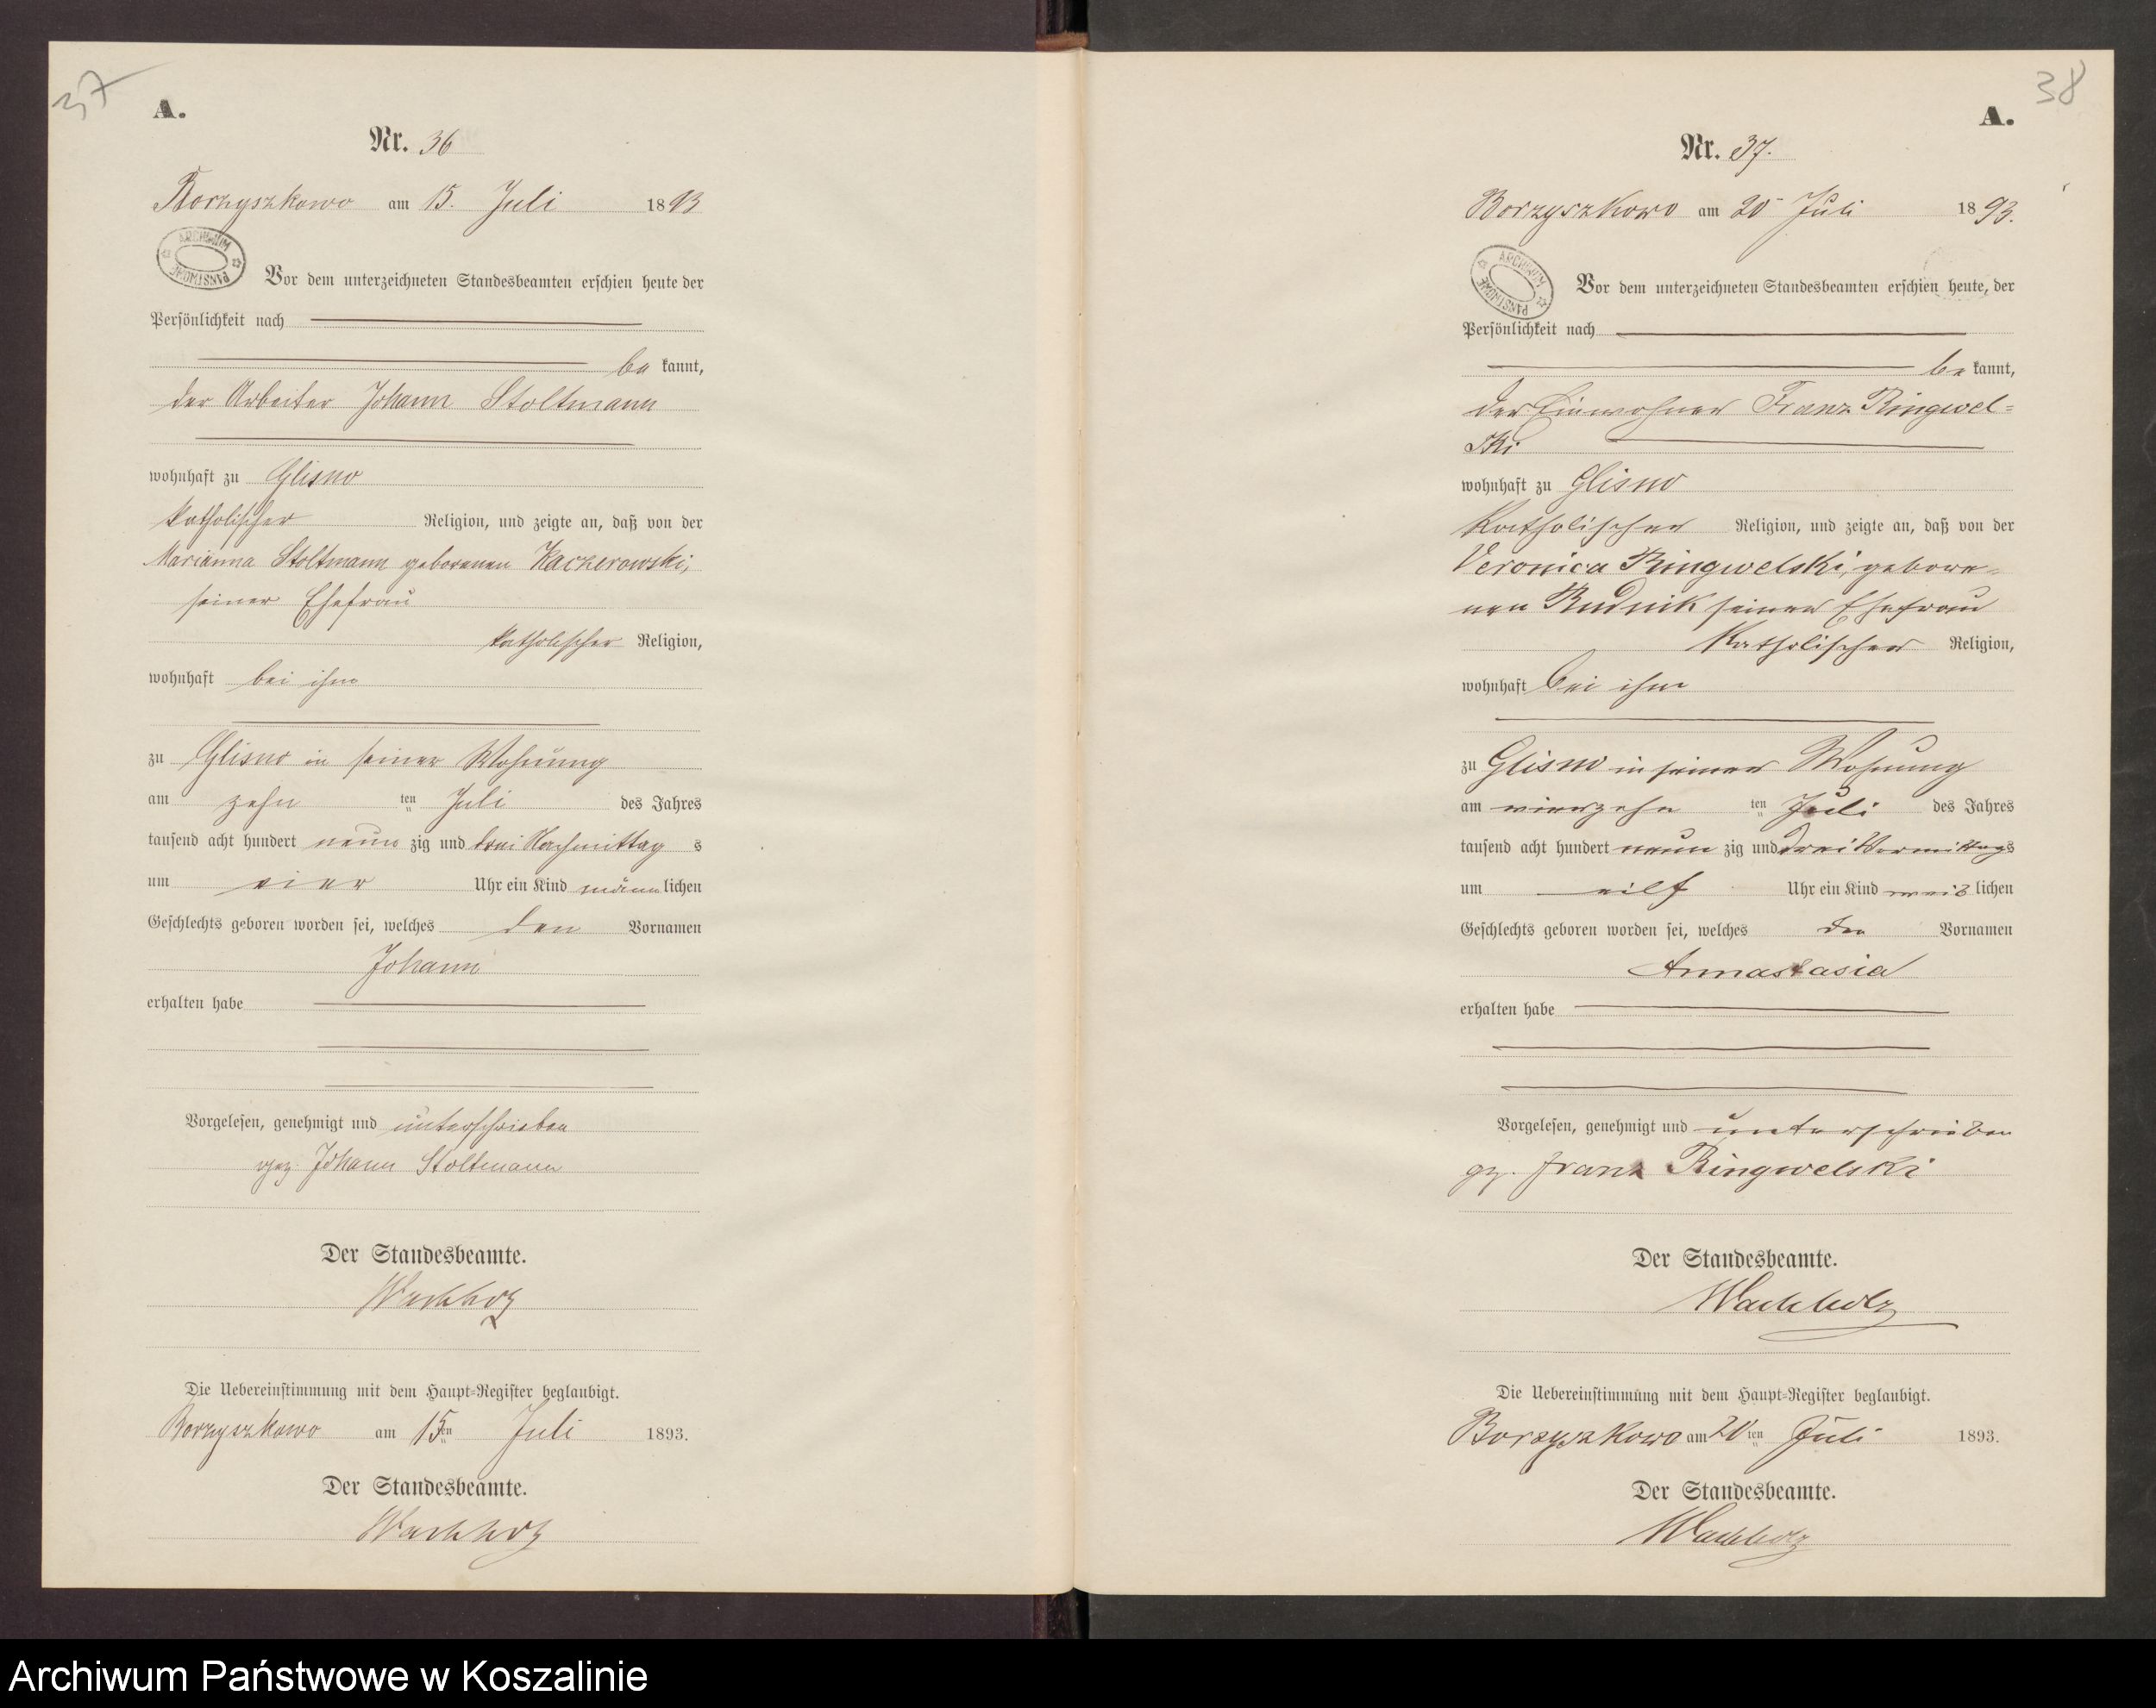 37
A.
Nr. 36
Borzyszkowo am 15. Juli 1893
ARCHIWUM PAŃSTWOWE
Vor dem unterzeichneten Standesbeamten erschien heute der
Persönlichkeit nach
be kannt,
der Arbeiter Johann Stoltmann
wohnhaft zu Glisno
katholischer Religion, und zeigte an, daß von der
Marianna Stoltmann geborenen Kaczerowski,
seiner Ehefrau
katholischer Religion,
wohnhaft bei ihm
zu Glisno in seiner Wohnung
am zehn ten Juli des Jahres
tausend acht hundert neun zig und drei Nachmittag s
um vier Uhr ein Kind männ lichen
Geschlechts geboren worden sei, welches den Vornamen
Johann
erhalten habe
Vorgelesen, genehmigt und unterschrieben
gez. Johann Stoltmann
Der Standesbeamte.
Wachholz
Die Uebereinstimmung mit dem Haupt-Register beglaubigt.
Borzyszkowo am 15ten Juli 1893.
Der Standesbeamte.
Wachholz
38
A.
Nr. 37.
Borzyszkowo am 20 Juli 1893.
ARCHIWUM PAŃSTWOWE
Vor dem unterzeichneten Standesbeamten erschien heute, der
Persönlichkeit nach
be kannt,
der Einwohner Franz Ringwel=
ski
wohnhaft zu Glisno
Katholischer Religion, und zeigte an, daß von der
Veronica Ringwelski, gebore-
nen Rudnik seiner Ehefrau
Katholischer Religion,
wohnhaft bei ihm
zu Glisno in seiner Wohnung
am vierzehn ten Juli des Jahres
tausend acht hundert neun zig und drei Vormittags
um eilf Uhr ein Kind weib lichen
Geschlechts geboren worden sei, welches den Vornamen
Annastasia
erhalten habe
Vorgelesen, genehmigt und unterschrieben
gz. Franz Ringwelski
Der Standesbeamte.
Wachholz
Die Uebereinstimmung mit dem Haupt-Register beglaubigt.
Borzyszkowo am 20 ten Juli 1893.
Der Standesbeamte.
Wachholz
Archiwum Państwowe w Koszalinie